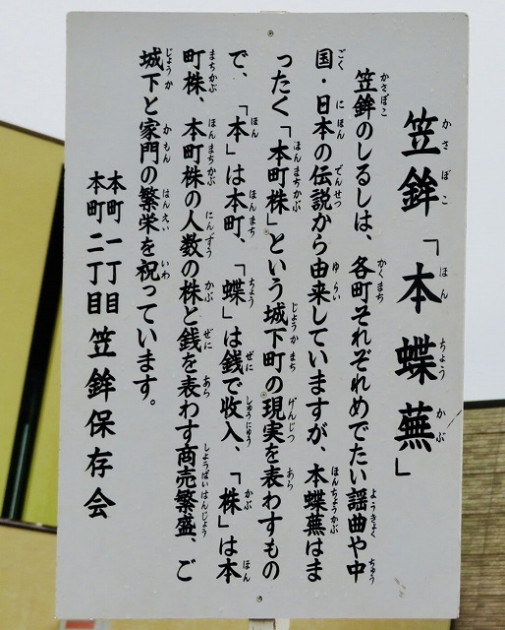 笠鉾「本蝶蕪」
笠鉾のしるしは、各町それぞれめでたい謡曲や中
国・日本の伝説から由来していますが、本蝶蕪はま
ったく「本町株」という城下町の現実を表わすもの
で、「本」は本町、「蝶」は銭で収入、「株」は本
町株、本町株の人数の株と銭を表わす商売繁盛、ご
城下と家門の繁栄を祝っています。
本町一丁目
本町二丁目
笠鉾保存会